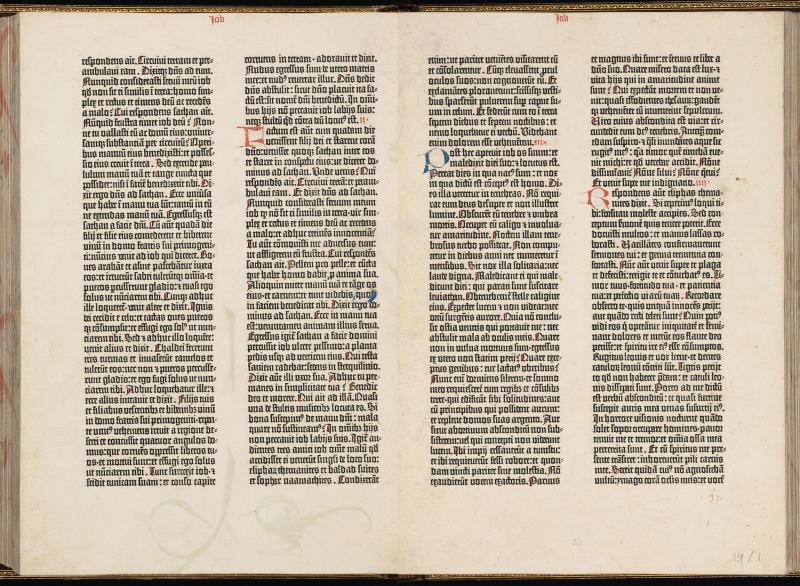 Job
respondens ait. Circuivi terram et per-
ambulavi eam. Dixitqz dñs ad eum.
Nunquid considerasti servū meū iob
qd nō sit ei similis ī terra: homo sim-
plex et rectus et timens deū ac recedēs
a malo? Cui respondens sathan ait.
Nūquid frustra timet iob deū? Non-
ne tu vallasti eū ac domū eius: univer-
sam substantiā per circuitū? Operi-
bus manuū eius benedixisti: et posses-
sio eius crevit ī terra. Sed extende pau-
lulum manū tuā et tange cuncta que
possidet: nisi ī faciē benedixerit tibi. Di-
xit ergo dñs ad sathan. Ecce universa
que habet in manu tua sūt: tantū in eū
ne extendas manū tuā. Egressusqz est
sathan a facie dñi. Cū aūt quadā die
filij et filie eius comederent et biberent
vinū in domo fratris sui primogeni-
ti: nūcius venit ad iob qui diceret. Bo-
ves arabāt et asine pascebātur iuxta
eos: et irruerūt sabei tulerūtqz omīa: et
pueros percusserunt gladio: et evasi ego
solus ut nūciarem tibi. Cumqz adhuc
ille loqueret: venit alter et dixit. Ignis
dei cecidit e celo: et tactas oves puerosqz
cōsumpsit: et effugi ego solus ut nun-
ciarem tibi. Sed et adhuc illo loquēte:
venit alius et dixit. Chaldei fecerunt
tres turmas et invaserūt camelos et
tulerūt eos: nec non et pueros percusse-
runt gladio: et ego fugi solus ut nun-
ciarem tibi. Adhuc loquebatur ille: et
ecce alius intravit et dixit. Filijs tuis
et filiabus vescentibus et bibentibus vinū
in domo fratris sui primogeniti: repē-
te ventus vehemens irruit a regione de-
serti et concussit quatuor angulos do-
mus: que corruēs oppressit liberos tu-
os et mortui sunt: et effugi ego solus
ut nūciarem tibi. Tunc surrexit iob et
scidit tunicam suam: et tonso capite
corruens in terram adoravit et dixit.
Nudus egressus sum de utero matris
mee: et nudus revertar illuc. Dñs dedit
dñs abstulit: sicut dño placuit ita fa-
ctū est: sit nomē dñi benedictū. In omībus
hijs nō peccavit iob labijs suis:
neqz stultū qd cōtra dū locutus est. II
Factum est aūt cum quadam die
venissent filij dei et starent corā
dño: venisset quoqz sathan inter eos
et staret in conspectu eius: ut diceret do-
minus ad sathan. Unde venis? Qui
respondēs ait. Circuivi terrā: et peram-
bulavi eam. Et dixit dñs ad sathan.
Nunquid considerasti servum meum
iob qd nō sit ei similis in terra: vir sim-
plex et rectus et timens deū ac recedens
a malo: et adhuc retinēs innocentiā?
Tu aūt cōmovisti me adversus eum:
ut affligerem eū frustra. Cui respondēs
sathan ait. Pellem pro pelle: et cūcta
que habet homo dabit pro anima sua.
Alioquin mitte manū tuā et tāge os
eius et carnem: et tunc videbis quod
in faciem benedicat tibi. Dixit ergo do-
minus ad sathan. Ecce in manu tua
est: verumtamen animam illius serva.
Egressus igit sathan a facie domini
percussit iob ulcere pessimo: a planta
pedis usqz ad verticem eius. Qui testa
saniem radebat: sedens in sterquilinio.
Dixit aūt illi uxor sua. Adhuc tu per-
manes in simplicitate tua? Benedic
deo et morere. Qui ait ad illā. Quasi
una de stultis mulieribus locuta es. Si
bona suscepimus de manu dñi: mala
quare nō sustineamus? In omībus hijs
non peccavit iob labijs suis. Igit au-
dientes tres amici iob omne malū qd
accidisset ei venerūt singuli de loco suo:
eliphaz themanites et baldad suites
et sophar naamathites. Condixerāt
Job
enim: ut pariter venientes visitarent eū
et cōsolarentur. Cūqz elevassent procul
oculos suos: nō cognoverūt eū. Et
exclamātes ploraverunt: scissisqz vesti-
bus sparserūt pulverem super caput su-
um in celum. Et sederūt cum eo ī terra
septem diebus et septem noctibus: et
nemo loquebatur ei verbū. Videbant
enim dolorem esse vehementem. III
Post hec aperuit iob os suum: et
maledixit diei suo: et locutus est.
Pereat dies in qua natus sum: et nox
in qua dictū est cōceptus est homo. Di-
es illa vertatur in tenebras. Nō requi-
rat eum deus desuper et non illustret
lumine. Obscurēt eū tenebre et umbra
mortis. Occupet eū caligo et involva-
tur amaritudine. Noctem illam tene-
brosus turbo possideat. Non compu-
tetur in diebus anni nec numeretur ī
mensibus. Sit nox illa solitaria: nec
laude digna. Maledicant ei qui male-
dicunt diei: qui parati sunt suscitare
leviathan. Obtenebrent stelle caligine
eius. Expectet lucem et non videat: nec
ortū surgentis aurore. Quia nō conclu-
sit ostia ventris qui portavit me: nec
abstulit mala ab oculis meis. Quare
non in vulva mortuus sum: egressus
ex utero non statim perij? Quare exce-
ptus genibus: cur lactatus uberibus?
Nunc enī dormiens silerem: et somno
meo requiescerē cum regibus et cōsulibus
terre: qui edificāt sibi solitudines: aut
cū principibus qui possident aurum:
et replent domos suas argento. Aut
sicut abortivum absconditū non sub-
sisterem: vel qui concepti non viderunt
lucem. Ibi impij cessaverūt a tumultu:
et ibi requieverūt fessi robore: et quon-
dam vincti pariter sine molestia. Nō
exaudierūt vocem exactoris. Parvus
et magnus ibi sunt: et servus et liber a
dño suo. Quare misero data est lux: et
vita hijs qui in amaritudine anime
sunt? Qui expectāt mortem et non ve-
nit: quasi effodientes thesaurū: gaudēt
qz vehementer cū invenerint sepulcrum.
Viro cuius abscondita est via: et cir-
cumdedit eum deus tenebris. Anteqz come-
dam suspiro: et qsi inundātes aque sic
rugitus meus: qa timor quē timebā eve-
nit michi: et qd verebar accidit. Nōne
dissimulavi? Nōne silui? Nōne quievi?
Et venit super me indignatio. IIII
Respondens aūt eliphas thema-
nites dixit. Si ceperimus loqui ti-
bi: forsitan moleste accipies. Sed con-
ceptum sermonē quis tenere poterit. Ecce
docuisti multos: et manus lassas ro-
borasti. Vacillātes confirmaverunt
sermones tui: et genua trementia con-
fortasti. Nūc aūt venit super te plaga
et defecisti: tetigit te et conturbatus es. Ubi ē ti-
mor tuus: fortitudo tua et patientia
tua: et perfectio viarū tuarum. Recordare
obsecro te quis unquā innocēs perijt:
aut quādo recti deleti sunt? Quin potius
vidi eos qui operātur iniquitatē et semi-
nant dolores et metūt eos flante deo
perisse: et spiritu ire eius esse cōsumptos.
Rugitus leonis et vox leene: et dentes
catulorum leonū cōtriti sūt. Tigris perijt
eo qd non haberet predam: et catuli leo-
nis dissipati sunt. Porro ad me dictū
est verbū absconditū: et quasi furtive
suscepit auris mea venas susurri eius.
In horrore visionis nocturne quādo
solet sopor occupare homines: pavor
tenuit me et tremor: et omīa ossa mea
perterrita sunt. Et cū spiritus me pre-
sente trāsiret: inhorruerūt pili carnis
mee. Stetit quidā cuius nō agnoscebā
vultū: ymago corā oculis meis: et vocē